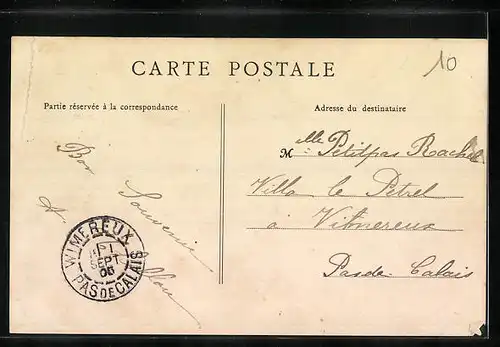 CARTE POSTALE
10
Partie réservée à la correspondance
Adresse du destinataire
Bon
Souvenir
A.
Melle Petitpas Rachel
Villa le Pétrel
à Vimereux
Pas de Calais
WIMEREUX
SEPT
06
PAS DE CALAIS